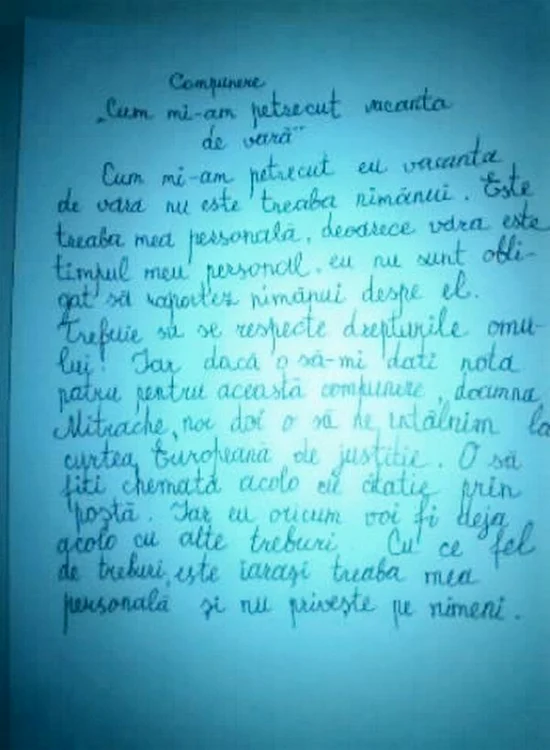 Compunere
„Cum mi-am petrecut vacanta
de vară"
Cum mi-am petrecut eu vacanta
de vara nu este treaba nimănui. Este
treaba mea personală, deoarece vara este
timpul meu personal, eu nu sunt obli-
gat să raportez nimănui despe el.
Trebuie să se respecte drepturile omu-
lui! Iar dacă o să-mi dati nota
patru pentru această compunere, doamna
Mitrache, noi doi o să ne întâlnim la
curtea Europeană de justitie. O să
fiti chemată acolo cu citatie prin
poștă. Iar eu oricum voi fi deja
acolo cu alte treburi. Cu ce fel
de treburi, este iarași treaba mea
personală și nu privește pe nimeni.